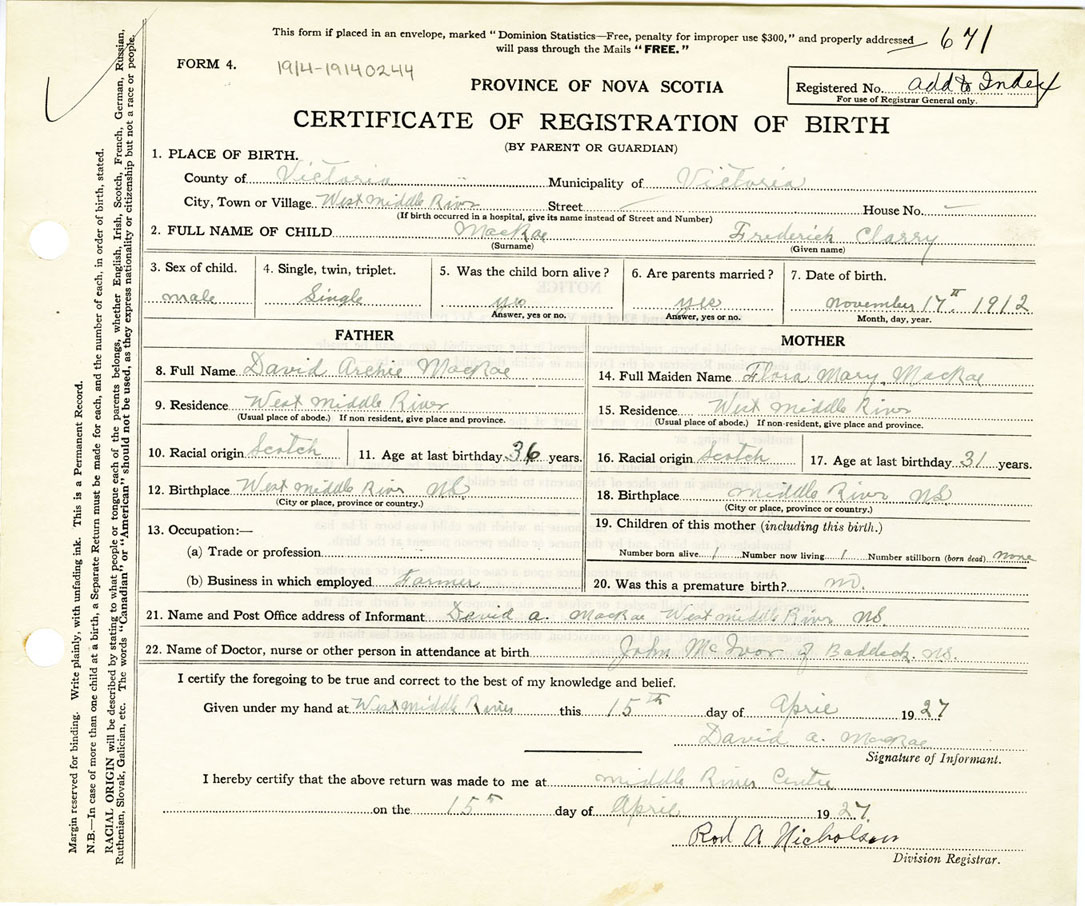 This form if placed in an envelope, marked "Dominion Statistics—Free, penalty for improper use $300," and properly addressed
will pass through the Mails "FREE."
671
FORM 4.
1914-19140244
PROVINCE OF NOVA SCOTIA
Registered No. add to Index
For use of Registrar General only.
CERTIFICATE OF REGISTRATION OF BIRTH
(BY PARENT OR GUARDIAN)
1. PLACE OF BIRTH.
County of Victoria Municipality of Victoria
City, Town or Village. West Middle River Street — House No. —
(If birth occurred in a hospital, give its name instead of Street and Number)
2. FULL NAME OF CHILD MacRae Frederick Clarry
(Surname) (Given name)
3. Sex of child. 4. Single, twin, triplet. 5. Was the child born alive? 6. Are parents married? 7. Date of birth.
male Single yes yes November 17th 1912
Answer, yes or no. Answer, yes or no. Month, day, year.
FATHER MOTHER
8. Full Name David Archie MacRae
9. Residence West Middle River
(Usual place of abode.) If non resident, give place and province.
10. Racial origin Scotch 11. Age at last birthday 36 years.
12. Birthplace West Middle River NS
(City or place, province or country.)
13. Occupation:—
(a) Trade or profession
(b) Business in which employed Farmer
14. Full Maiden Name Flora Mary MacRae
15. Residence West Middle River
(Usual place of abode.) If non-resident, give place and province.
16. Racial origin Scotch 17. Age at last birthday 31 years.
18. Birthplace Middle River NS
(City or place, province or country.)
19. Children of this mother (including this birth.)
Number born alive 1 Number now living 1 Number stillborn (born dead) none
20. Was this a premature birth? no.
21. Name and Post Office address of Informant David A. MacRae West Middle River NS.
22. Name of Doctor, nurse or other person in attendance at birth John McIvor of Baddeck. NS.
I certify the foregoing to be true and correct to the best of my knowledge and belief.
Given under my hand at West Middle River this 15th day of April 1927
David A. MacRae
Signature of Informant.
I hereby certify that the above return was made to me at Middle River Centre
on the 15th day of April 1927.
Rod A Nicholson
Division Registrar.
Margin reserved for binding. Write plainly, with unfading ink. This is a Permanent Record.
N.B.—In case of more than one child at a birth, a Separate Return must be made for each, and the number of each, in order of birth, stated.
RACIAL ORIGIN will be described by stating to what people or tongue each of the parents belongs, whether English, Irish, Scotch, French, German, Russian,
Ruthenian, Slovak, Galician, etc. The words "Canadian" or "American" should not be used, as they express nationality or citizenship but not a race or people.